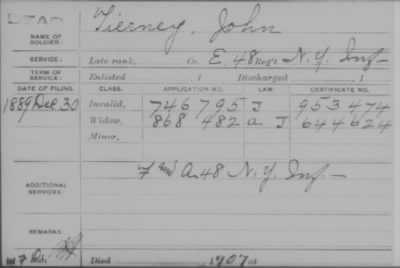 DEAD
Tierney, John
NAME OF SOLDIER:
SERVICE: Late rank, Co. E, 48 Reg't N.Y. Inf
TERM OF SERVICE: Enlisted , 1 Discharged , 1
DATE OF FILING. CLASS. APPLICATION NO. LAW. CERTIFICATE NO.
1889 Dec. 30 Invalid, 746 795 J 953 474
Widow, 868 482 a J 644 624
Minor,
ADDITIONAL SERVICES: A 48 N.Y. Inf
REMARKS:
Died 1907 at